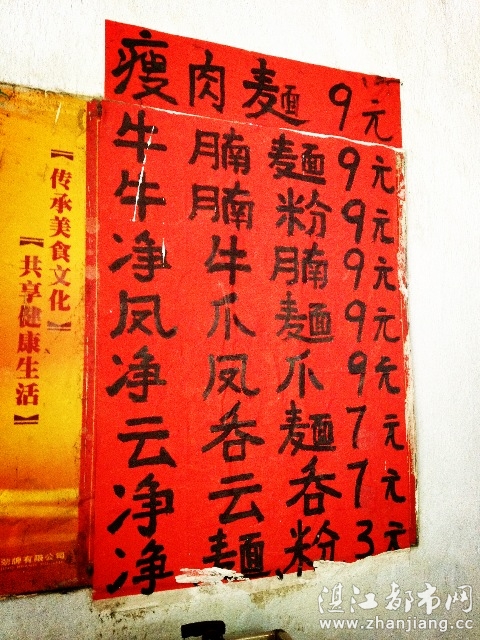 瘦肉麵 9元
牛腩麵 9元
牛腩粉 9元
净牛腩 9元
凤爪麵 9元
净凤爪 9元
云吞麵 7元
净云吞 7元
净麵粉 3元
【传承美食文化】
【共享健康生活】
有限公司
湛江都市网
www.zhanjiang.cc